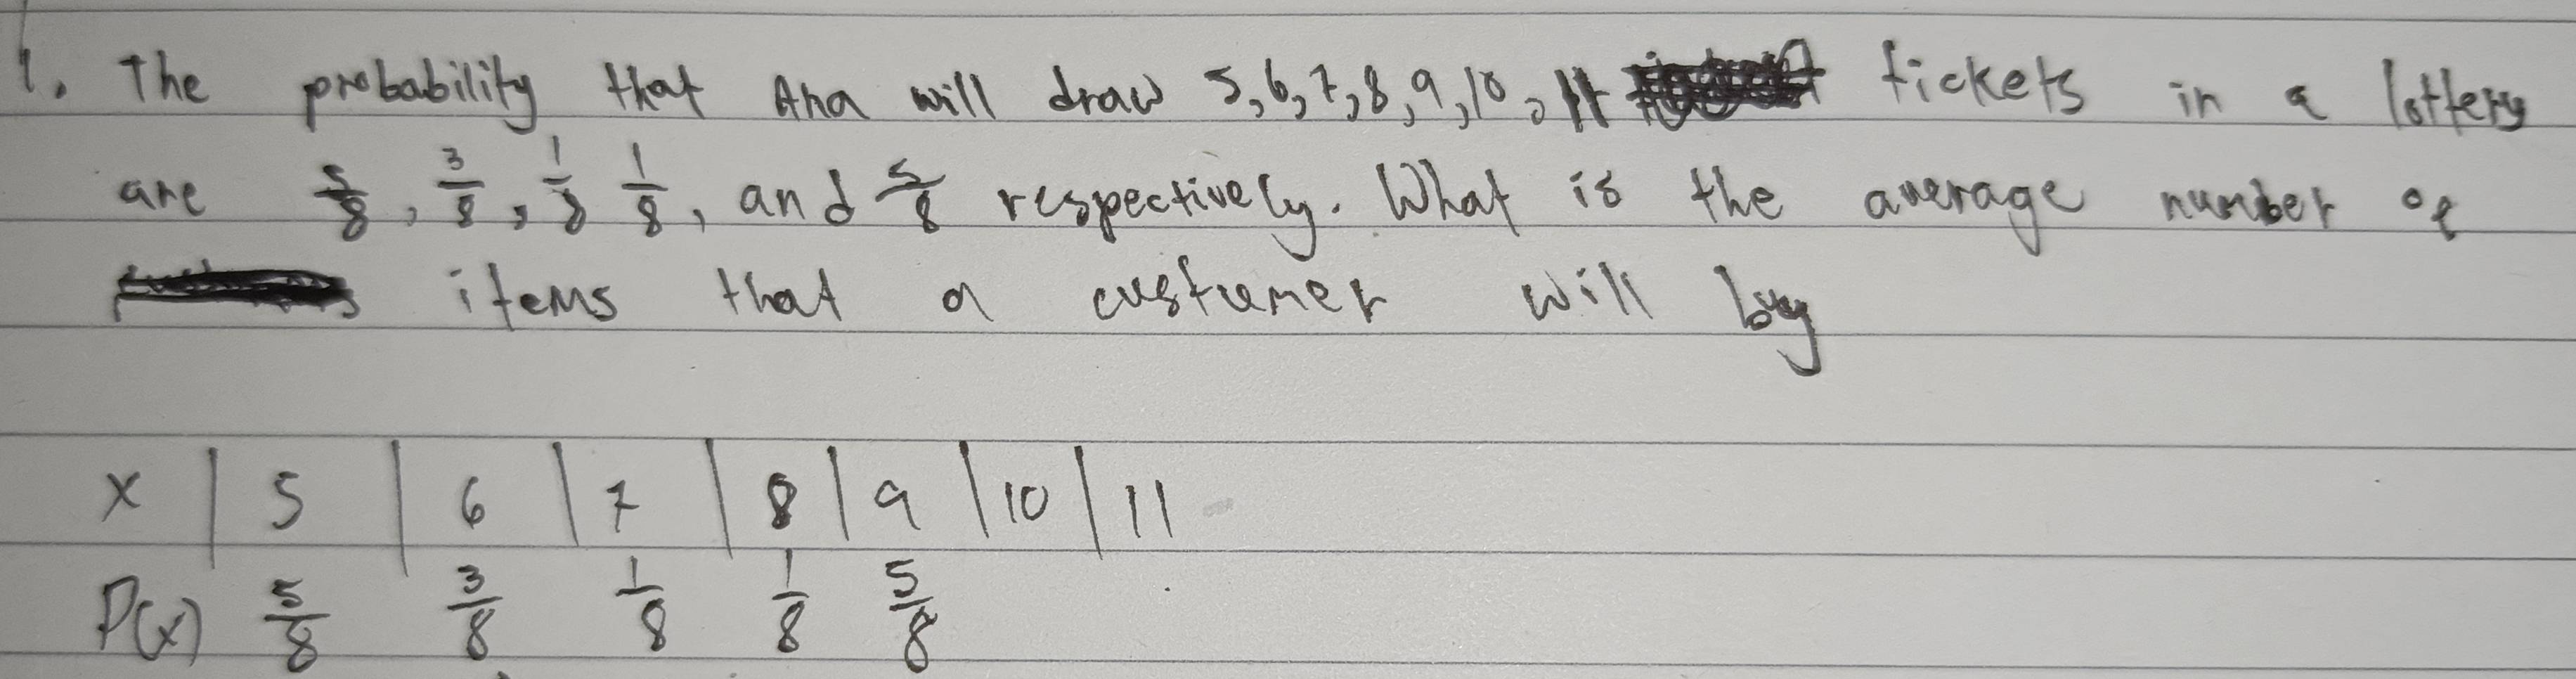 1. The probability that Ana will draw 5,6,7,8,9,10,11 tickets in a lottery
are 5/8, 3/8, 1/8 1/8, and 5/8 respectively. What is the average number of
items that a custumer will buy
X | 5 | 6 | 7 | 8 | 9 | 10 | 11
P(x) 5/8 3/8 1/8 1/8 5/8